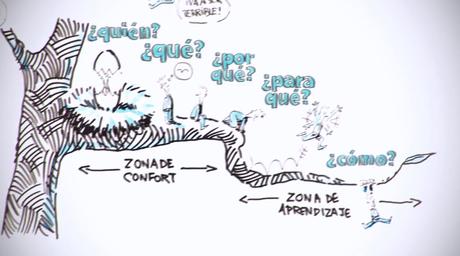 TERRIBLE!
¿quién?
¿qué?
¿por
qué?
¿para
qué?
¿cómo?
ZONA DE
CONFORT
ZONA DE
APRENDIZAJE